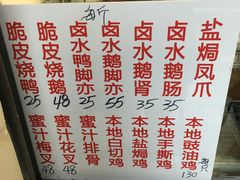 每斤
脆皮烧鸭
25
脆皮烧鹅
48
卤水鸭脚亦
25
卤水鹅脚亦
55
卤水鹅肾
35
卤水鹅肠
35
盐焗凤爪
蜜汁梅叉
48
蜜汁花叉
48
蜜汁排骨
本地白切鸡
本地盐焗鸡
本地手撕鸡
本地豉油鸡
每只
130